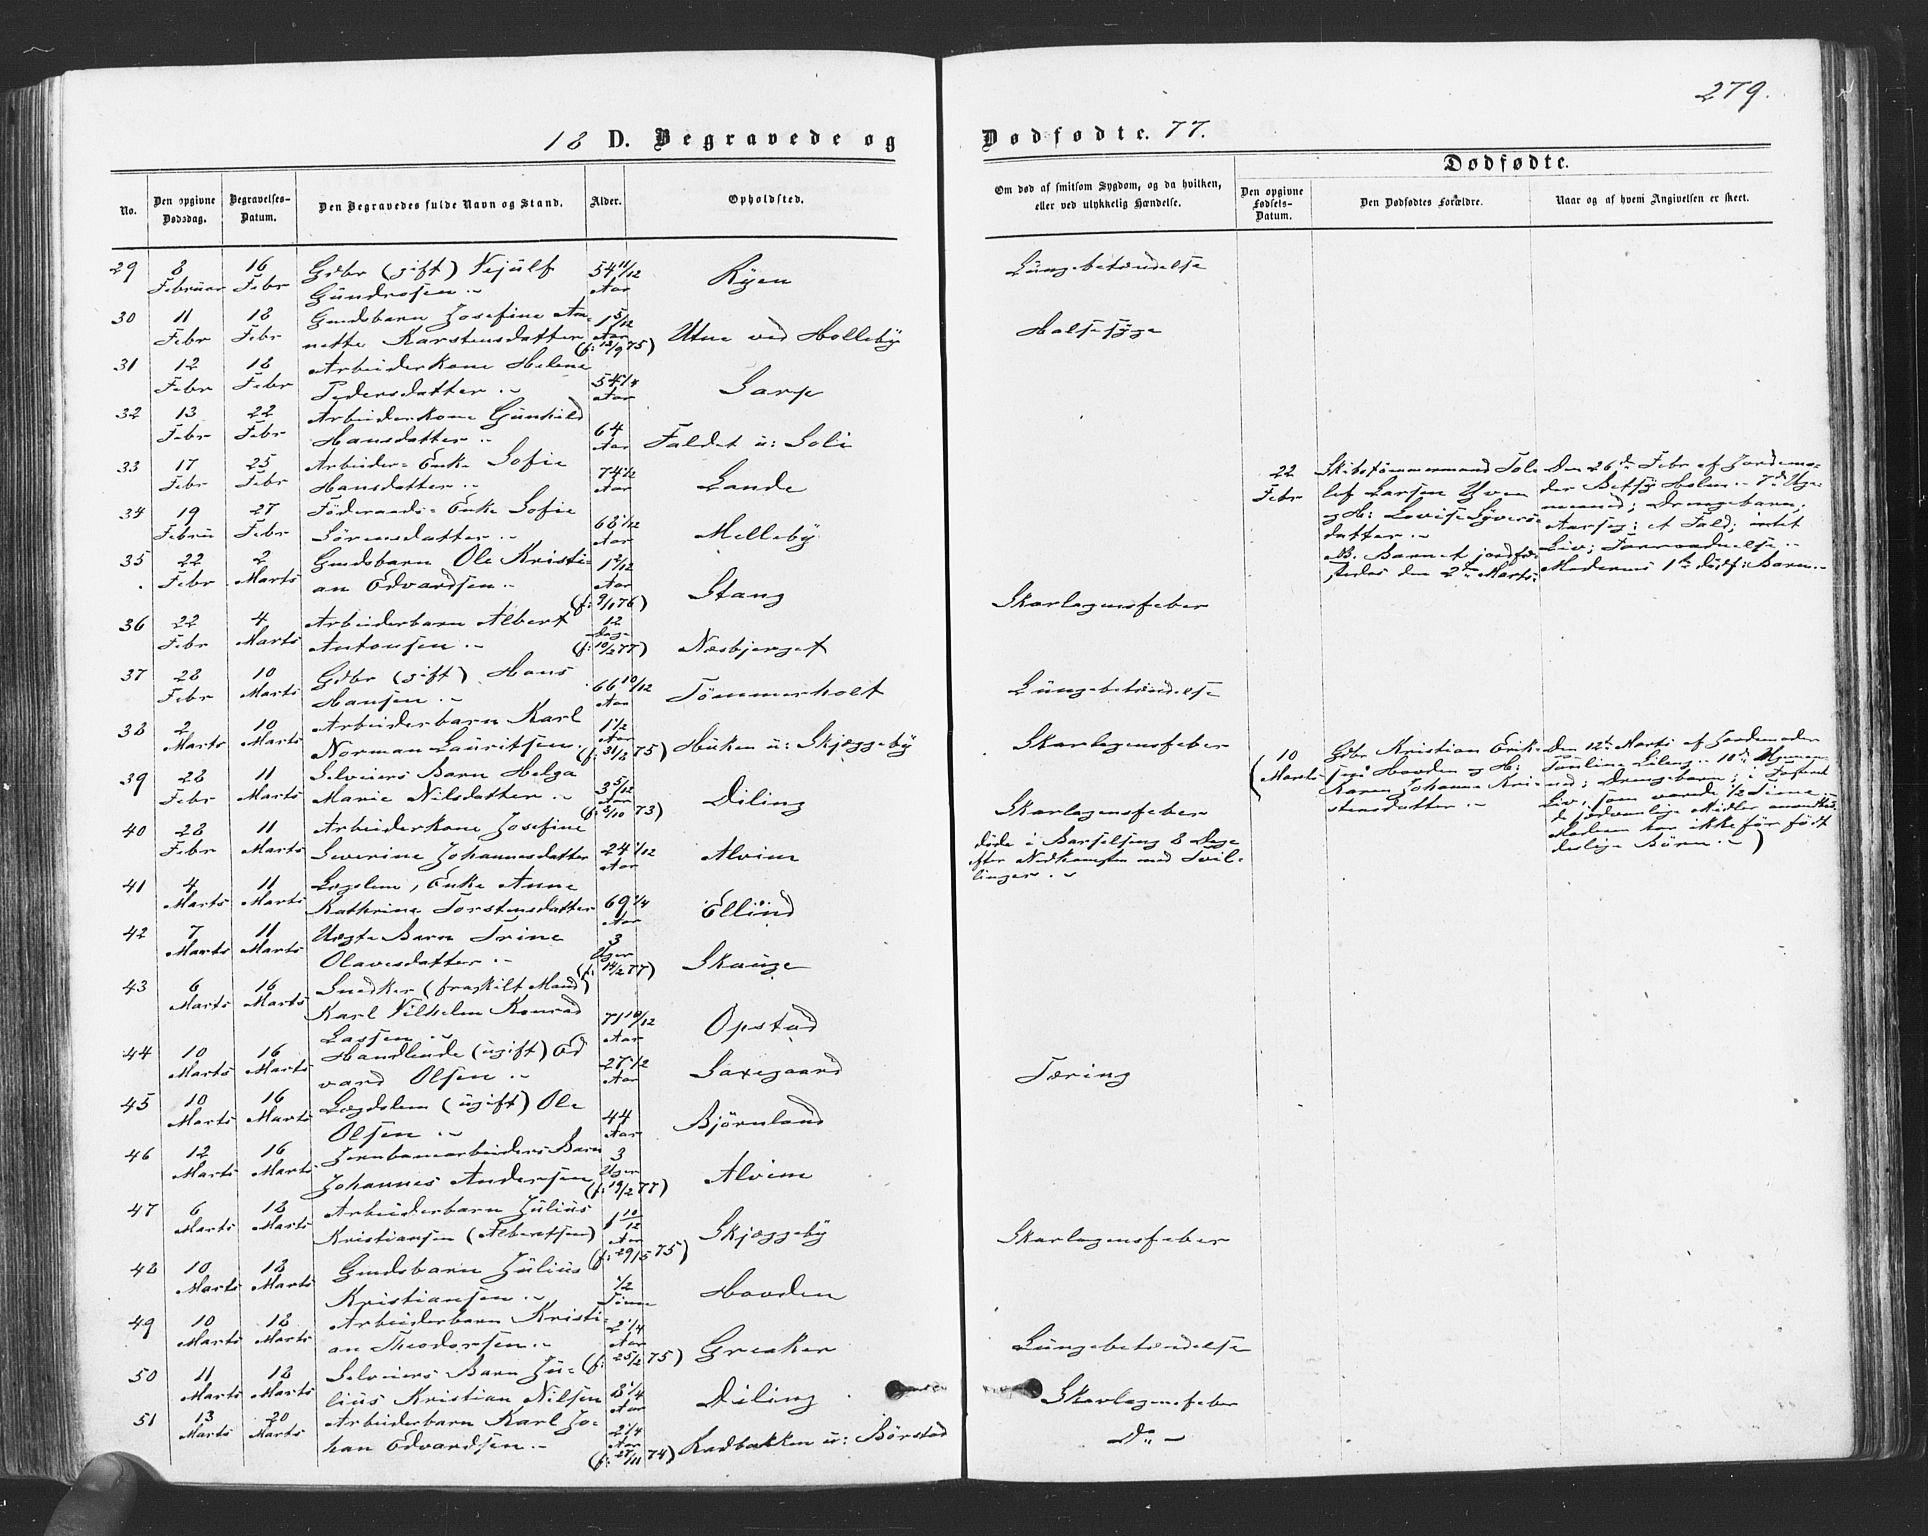 279.
18 D. Begravede og Dødfødte. 77.
Dødfødte.
No.
Den opgivne Dødsdag.
Begravelses-Datum.
Den Begravedes fulde Navn og Stand.
Alder.
Opholdsted.
Om død af smitsom Sygdom, og da hvilken, eller ved ulykkelig Hændelse.
Den opgivne Fødsels-Datum.
Den Dødfødtes Forældre.
Naar og af hvem Angivelsen er skeet.
29 8 Februar 16 Febr Gdbr (gift) Vejulf
Gundrosen .- 54 11/12 Aar Ryen Lungebetændelse
30 11 Febr 18 Febr Gmdsbarn Josefine An-
nette Karstensdatter 1 5/12 Aar (f: 12/9 75) Utne ved Holleby Halssyge
31 12 Febr 18 Febr Arbeiderkone Helene
Pedersdatter .- 54 1/4 Aar Sarp
32 13 Febr 22 Febr Arbeiderkone Gunhild
Hansdatter .. 64 Aar Faldet u: Soli
33 17 Febr 25 Febr Arbeider= Enke Sofie
Hansdatter .. 74 1/2 Aar Sande
34 19 Febru 27 Febr Föderaads= Enke Sofie
Sörensdatter .- 68 1/12 Aar Melleby
35 22 Febr 2 Marts Gmdsbarn Ole Kristi-
an Edvardsen .. 1 1/12 Aar (f: 9/1 76) Stang Skarlagensfeber
36 22 Febr 4 Marts Arbeiderbarn Albert
Antonsen .. 12 Dage (f: 10/2 77) Næsbjerget
37 28 Febr 10 Marts Gdbr (gift) Hans
Hansen .. 66 10/12 Aar Tømmerholt Lungebetændelse
38 2 Marts 10 Marts Arbeiderbarn Karl
Norman Lauritsen. 1 1/2 Aar (f: 31/8 75) Huken u: Skjæggeby Skarlagensfeber
39 28 Febr 11 Marts Selveiers Barn Helga
Marie Nilsdatter .. 3 5/12 Aar (f: 2/10 73) Diling Skarlagensfeber
40 28 Febr 11 Marts Arbeiderkone Josefine
Severine Johannesdatter 24 1/12 Aar Alvim døde i Barselseng 8 Dage
efter Nedkomsten med Tvil-
linger .-
41 4 Marts 11 Marts Lægslem, Enke Anne
Kathrine Torstensdatter 69 1/4 Aar Ellind
42 7 Marts 11 Marts Uægte Barn Trine
Olavesdatter .- 3 Uger (f: 14/2 77) Skauge
43 6 Marts 16 Marts Snedker (fraskilt Mand)
Karl Vilhelm Konrad
Lassen .. 71 10/12 Aar Opstad
44 10 Marts 16 Marts Handlende (ugift) Ed
vard Olsen .. 27 1/2 Aar Saxegaard Tæring
45 10 Marts 16 Marts Lægdslem (ugift) Ole
Olsen .- 44 Aar Bjørnland
46 12 Marts 16 Marts Jernbanearbeiders Barn
Johannes Andersen 3 Uger (f: 19/2 77) Alvim
47 6 Marts 18 Marts Arbeiderbarn Julius
Kristiansen (Albertsen) 1 10/12 Aar (f: 29/5 75) Skjæggeby Skarlagensfeber
48 10 Marts 18 Marts Gmdsbarn Julius
Kristiansen .. 1/2 Time Hovden
49 10 Marts 18 Marts Arbeiderbarn Kristi-
an Theodorsen .. 2 1/4 Aar (f: 25/2 75) Greaker Lungebetændelse
50 11 Marts 18 Marts Selveiers Barn Ju-
lius Kristian Nilsen 8 1/4 Aar Diling Skarlagensfeber
51 13 Marts 20 Marts Arbeiderbarn Karl Jo-
han Edvardsen .- 2 1/4 Aar (f: 27/11 74) Rødbakken u: Børstad Do -
22 Febr
Skibstømmermand Tol-
lef Larsen Yven
og H: Lovise Syvers-
datter .-
NB. Barnet jordfæ-
stedes den 2den Marts.
Den 26de Febr af Jordemo-
der Betsy Holm .. 7de Uge-
Aarsag: et Fald; intet
Liv; Forraadnelse ..
Moderens 1ste dødf: Barn .-
(10 Marts
Gdbr Kristian Erik-
sen Hovden og H:
Karen Johanne Kri-
stensdatter .-
Den 12te Marts af Jordemoder
Pauline Lileng ..
Drengebarn;
Liv, som varede 1/2 Time ..
de sædvanlige Midler anvendtes
Moderen har ikke før født
deslige Børn .- )